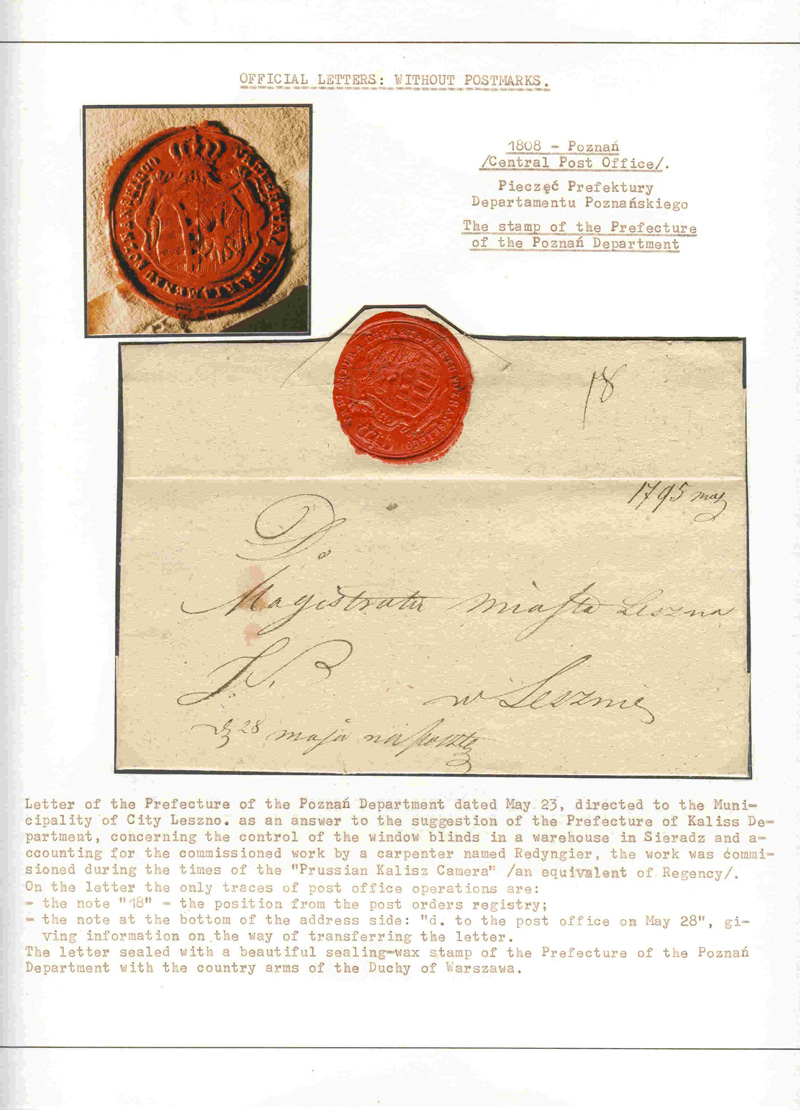 OFFICIAL LETTERS: WITHOUT POSTMARKS.
1808 - Poznań
/Central Post Office/.
Pieczęć Prefektury
Departamentu Poznańskiego
The stamp of the Prefecture
of the Poznań Department
18
1795
Do
Magistratu miasta Leszna
w Lesznie
28 maja na pocztę
Letter of the Prefecture of the Poznań Department dated May 23, directed to the Muni-
cipality of City Leszno. as an answer to the suggestion of the Prefecture of Kaliss De-
partment, concerning the control of the window blinds in a warehouse in Sieradz and a-
ccounting for the commissioned work by a carpenter named Redyngier, the work was commi-
sioned during the times of the "Prussian Kalisz Camera" /an equivalent of Regency/.
On the letter the only traces of post office operations are:
- the note "18" - the position from the post orders registry;
- the note at the bottom of the address side: "d. to the post office on May 28", gi-
ving information on the way of transferring the letter.
The letter sealed with a beautiful sealing-wax stamp of the Prefecture of the Poznań
Department with the country arms of the Duchy of Warszawa.